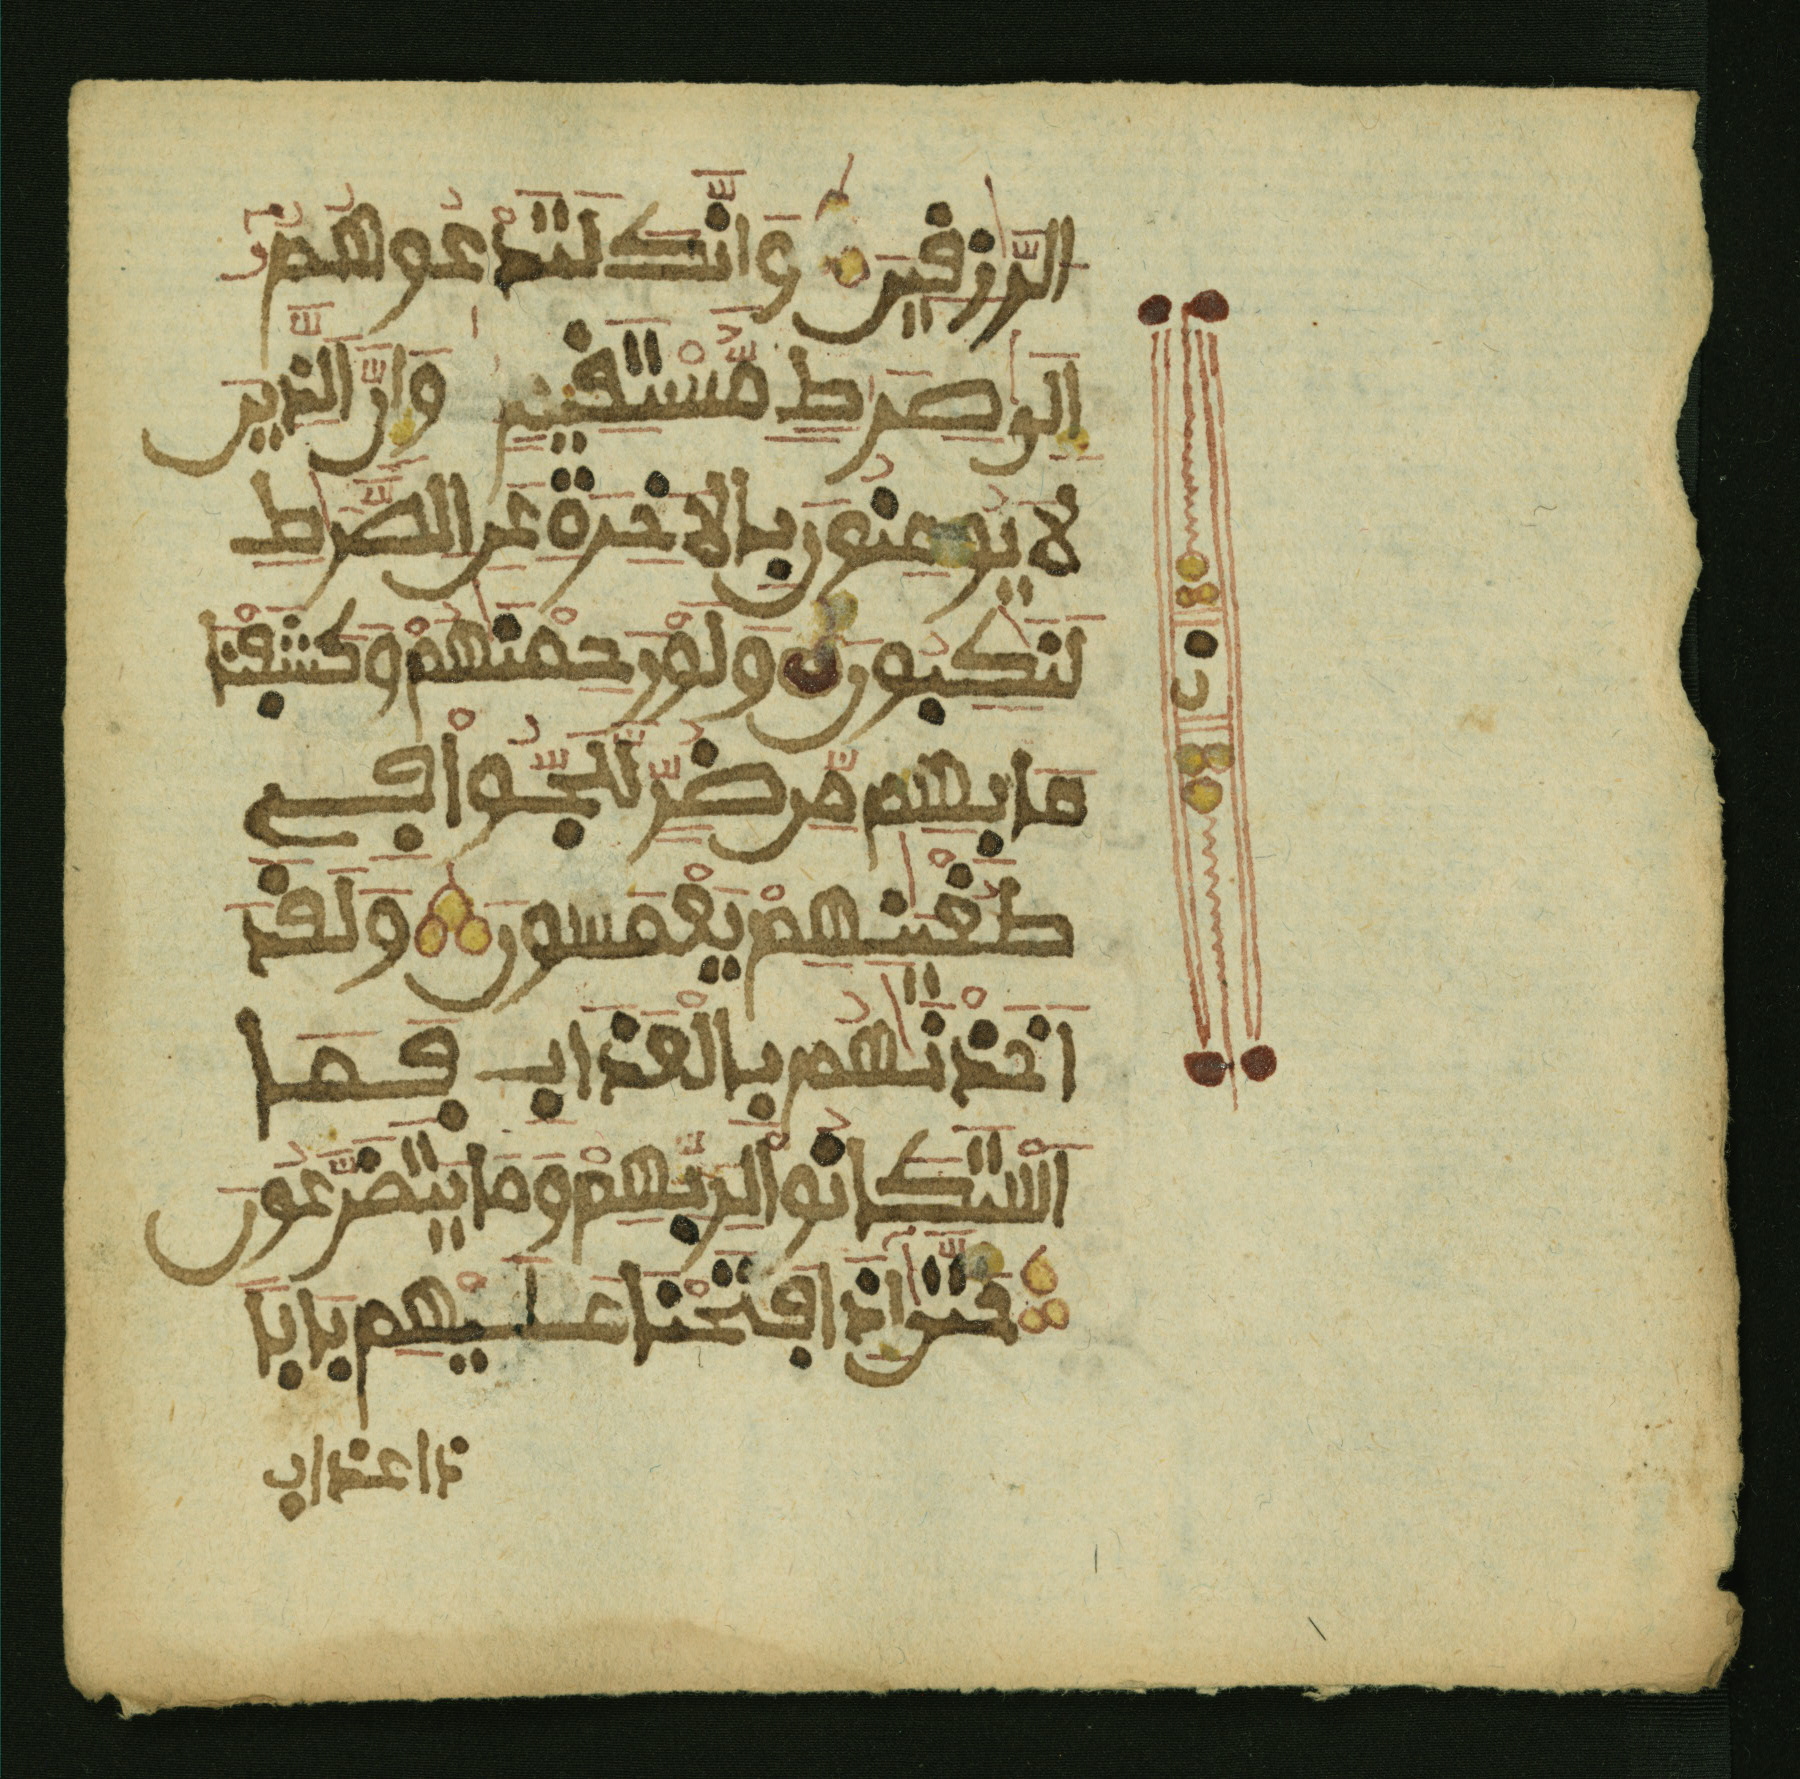 الرّٰزِفِينَ وَإِنَّكَ لَتَدْعُوهُمُۥٓ
إِلَىٰ صِرَٰطٖ مُّسْتَفِيمٖ وَإِنَّ ٱلذِينَ
لَا يُومِنُونَ بِالَاخِرَةِ عَنِ الصِّرَٰطِ
لَنَٰكِبُونَ وَلَوْ رَحِمْنَٰهُمْ وَكَشَفْنَا
مَا بِهِم مِّن ضُرّٖ لَّلَجُّواْ فِے
طُغْيَٰنِهِمْ يَعْمَهُونَ وَلَفَدَ
اَخَذْنَٰهُم بِالْعَذَابِ فَمَا
اَسْتَكَانُواْ لِرَبِّهِمْ وَمَا يَتَضَرَّعُونَ
حَتَّىٰٓ إِذَا فَتَحْنَا عَلَيْهِم بَابا
ن
ذا عذاب